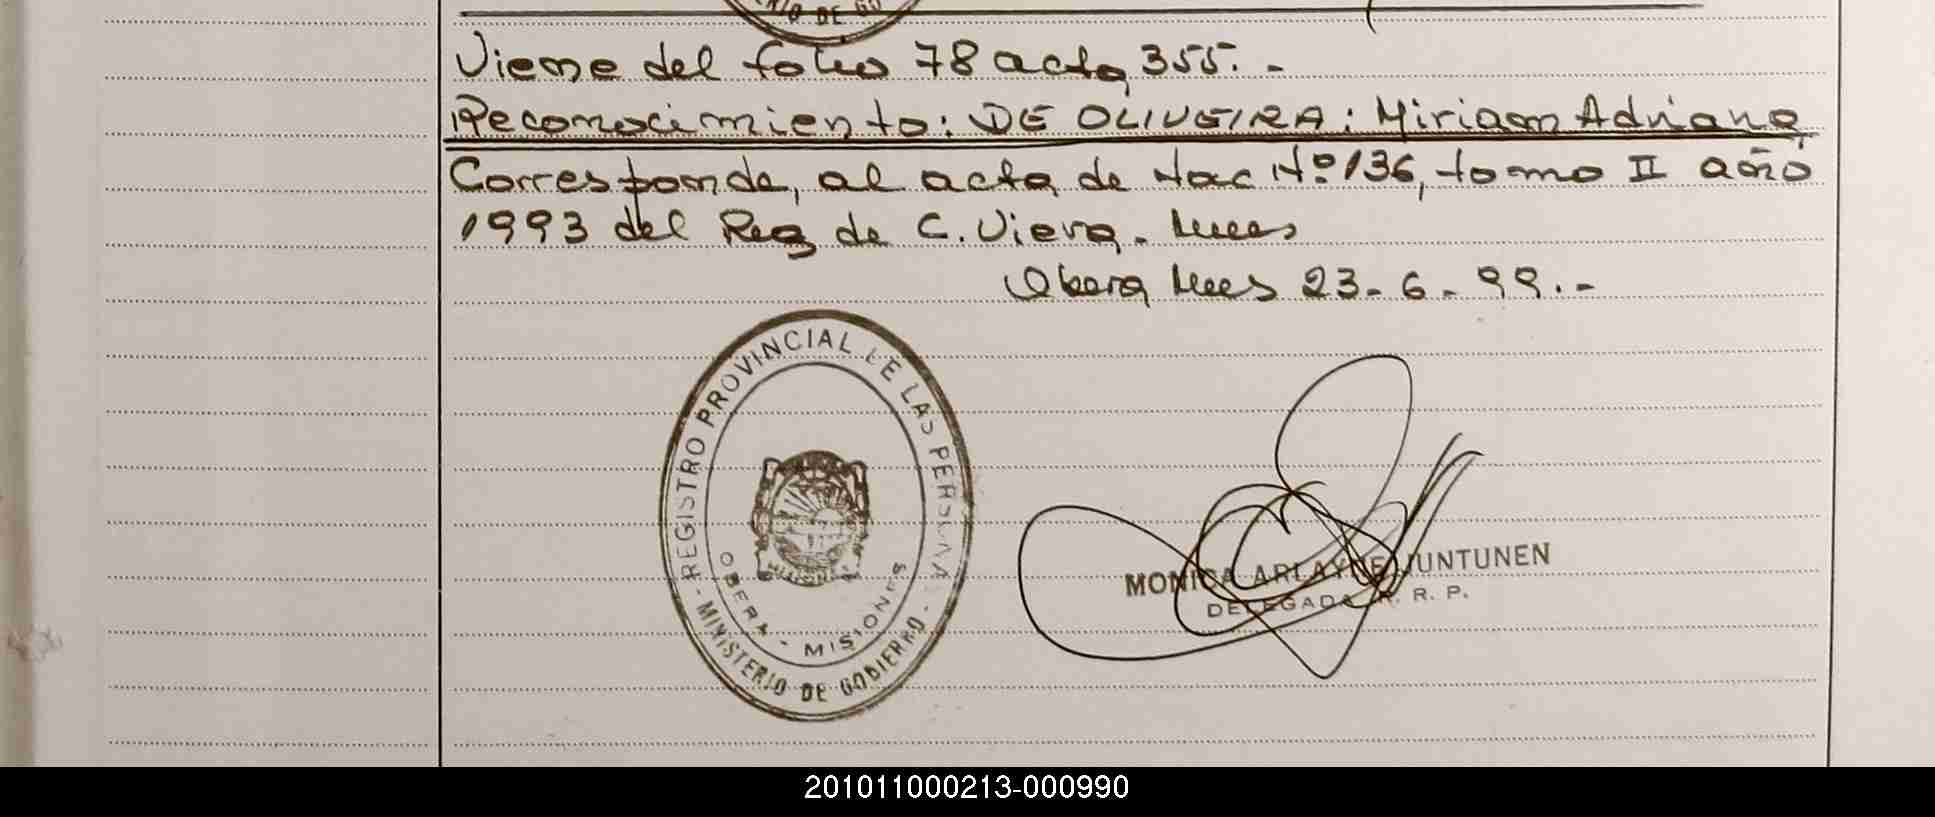 Viene del folio 78 acta 355.-
Reconocimiento: DE OLIVEIRA: Miriam Adriana
Corresponde, al acta de Nac Nº 136, tomo II año
1993 del Reg de C. Viera.
Obera 23-6-99.-
REGISTRO PROVINCIAL DE LAS PERSONAS
OBERA - MISIONES
- MINISTERIO DE GOBIERNO -
MONICA ARLAYNE JUNTUNEN
DELEGADA R. R. P.
201011000213-000990